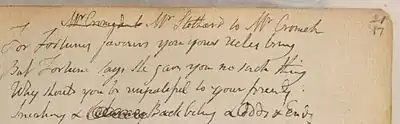 Mr Cromek to Mr Stothard to Mr Cromek
For Fortunes favours you your riches bring
But Fortune says she gave you no such thing
Why shoud you be ungrateful to your friends
Sneaking & Backbiting & Odds & Ends
17